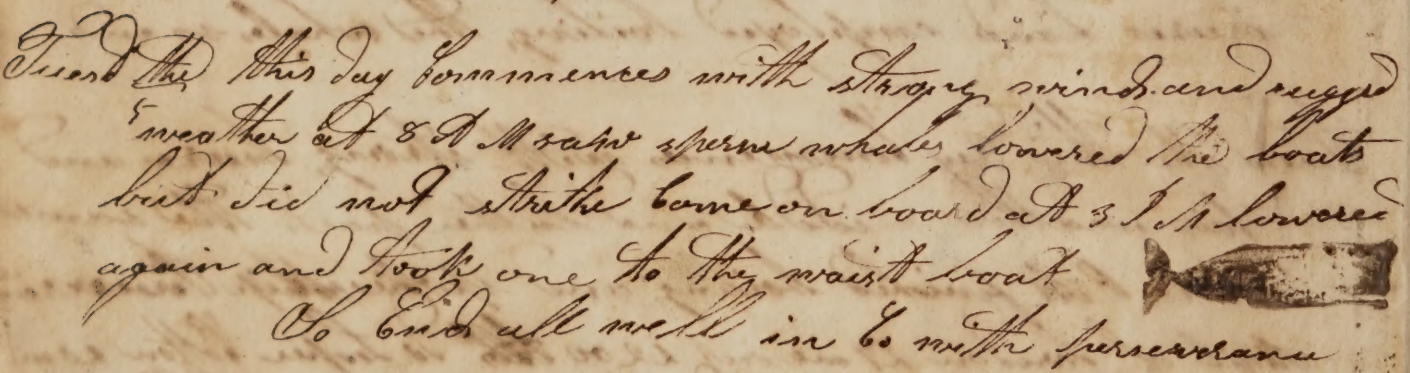 Tuesd the this day Commences with strong winds and rugged
5 weather at 8 A M saw sperm whales lowered the boats
but did not strike Come on board at 3 P M lowered
again and took one to the waist boat
So Ends all well in Co with perseverance